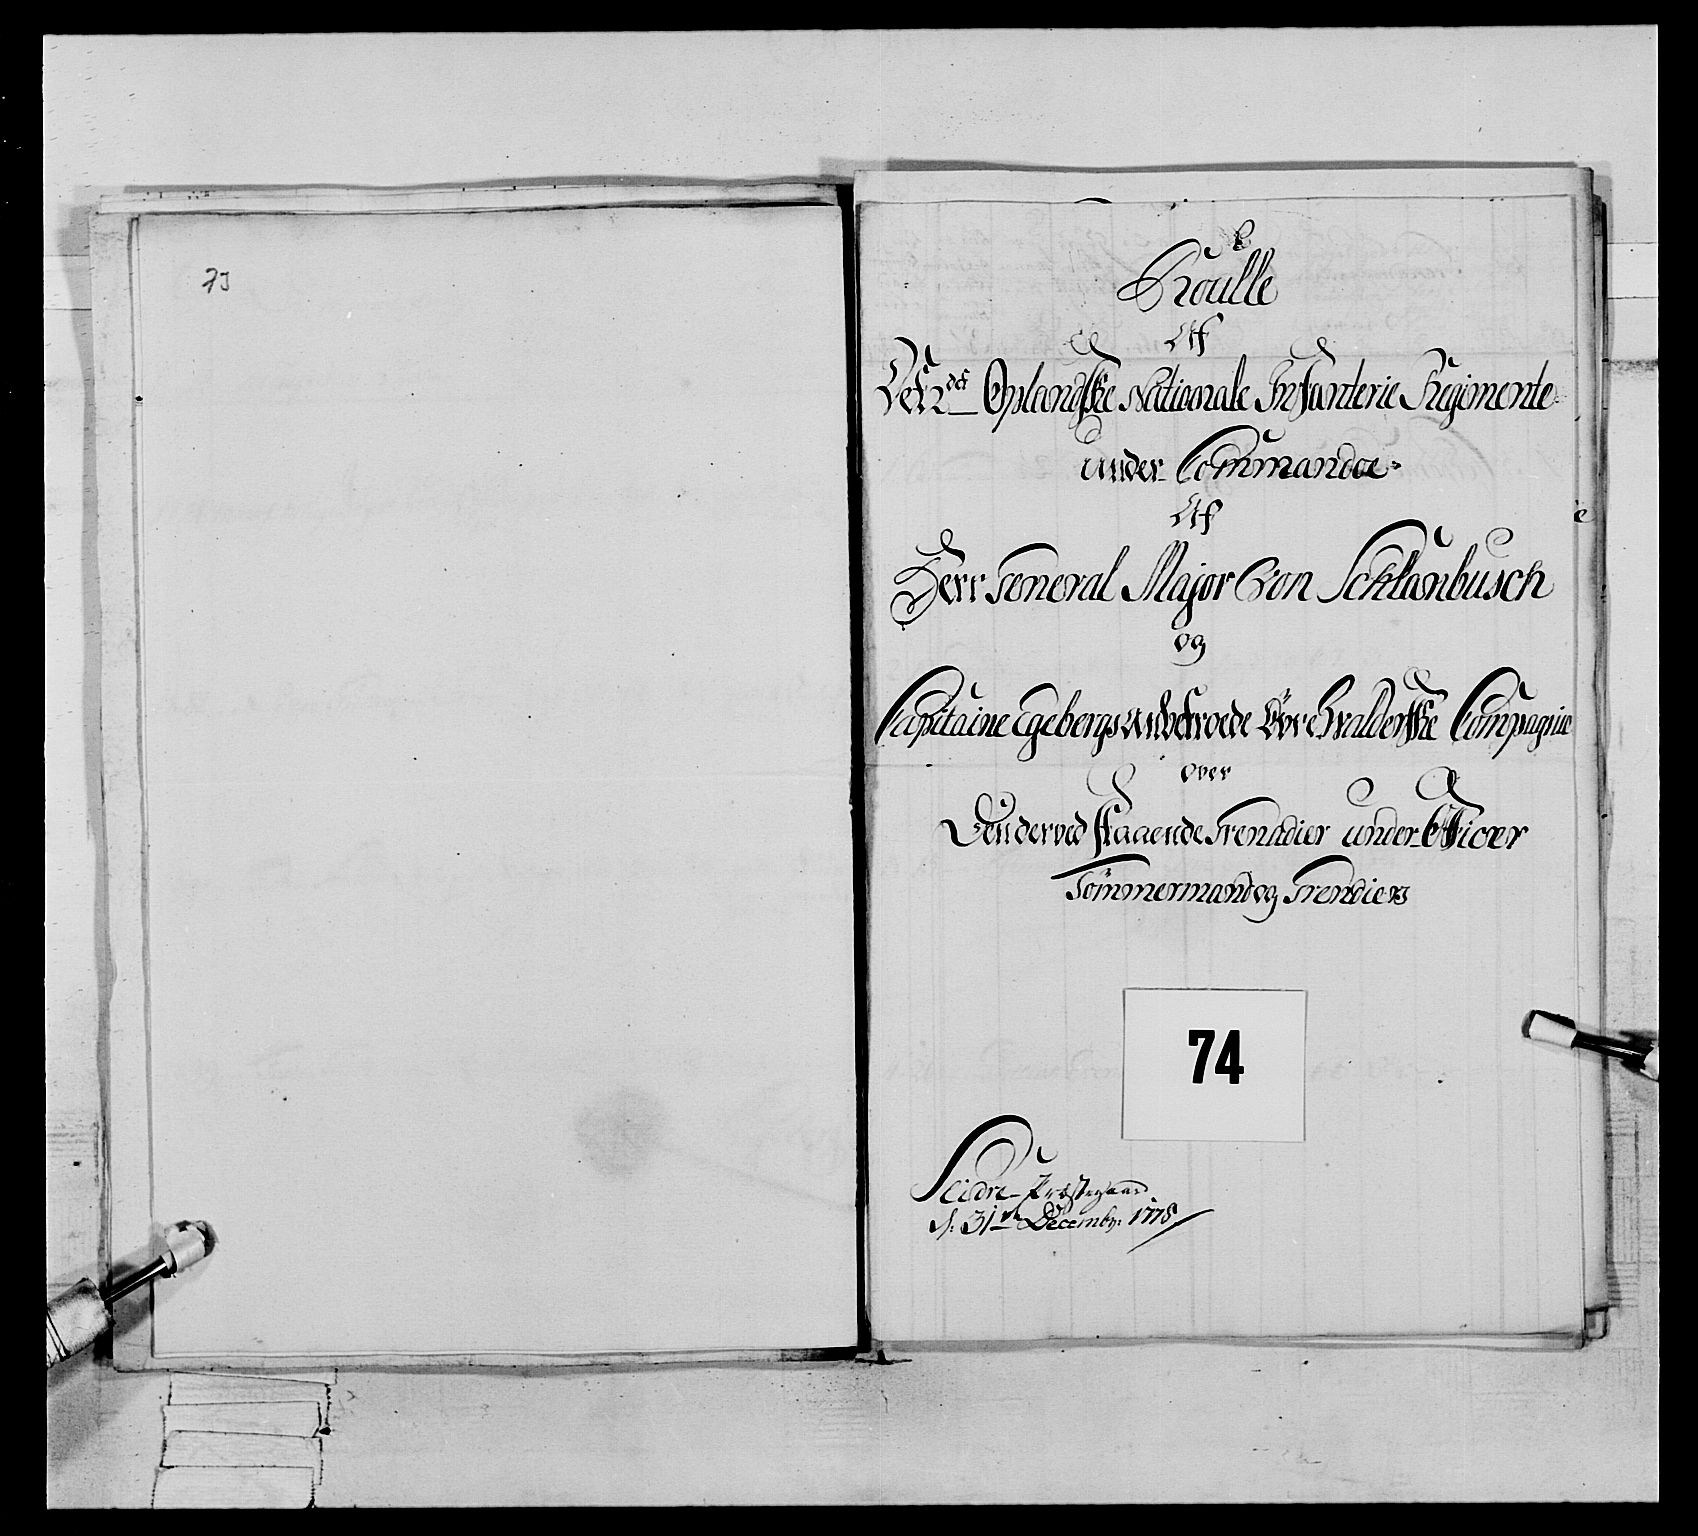 73
Roulle
Af
Det 2det Oplandske Nationale Infanterie Regimente
under Commandoe
Af
Herr General Major Von Schlanbusch
og
Capitaine Egebergs anbetroede Øvre Walderske Compagnie
over
Den derved staaende Grenadier under Officer
Tømmermand og Grendiers
74
Slidre Præstegaard
d: 31te Decembr: 1778